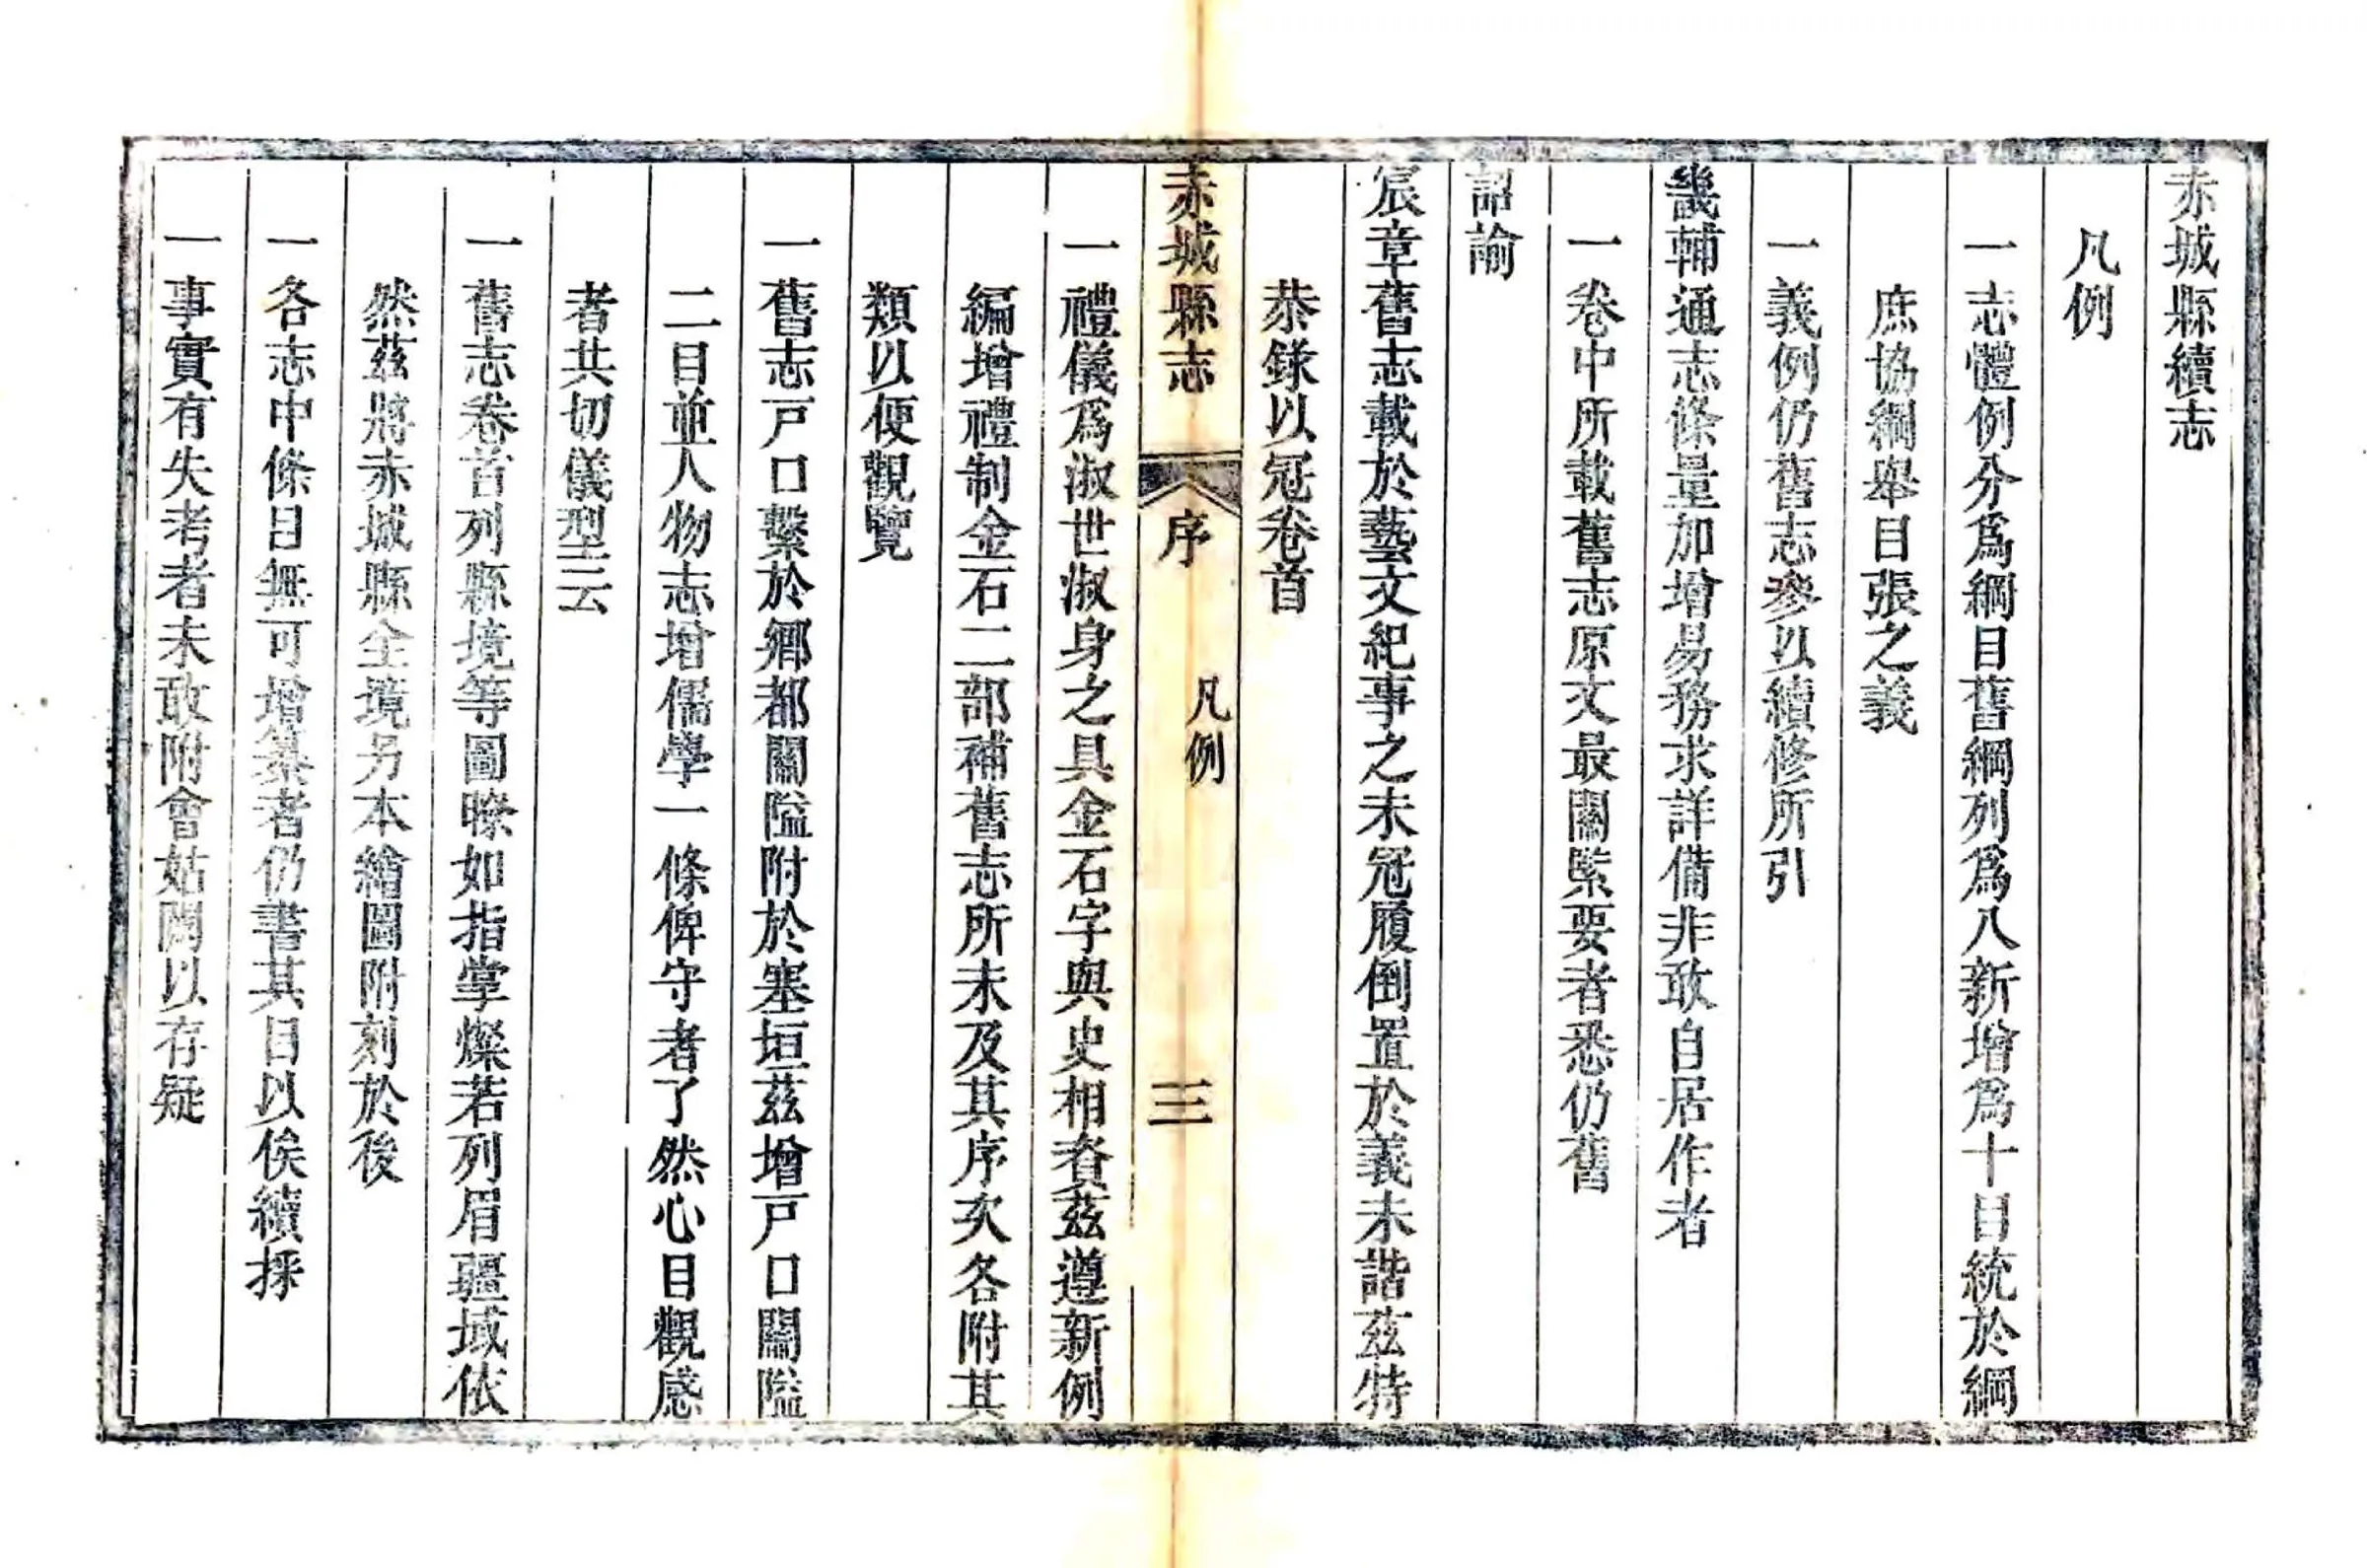 赤城縣續志
凡例
一志體例分爲綱目舊綱列爲八新增爲十目統於綱
庶協綱舉目張之義
一義例仍舊志參以續修所引
畿輔通志條量加增易務求詳備非敢自居作者
一卷中所載舊志原文最關緊要者悉仍舊
詔諭
宸章舊志載於藝文紀事之末冠履倒置於義未諧茲特
恭錄以冠卷首
赤城縣志
序
凡例
三
一禮儀爲淑世淑身之具金石字與史相資茲遵新例
編增禮制金石二部補舊志所未及其序次各附其
類以便觀覽
一舊志戸口繫於鄉都關隘附於塞垣茲增戸口關隘
二目並人物志增儒學一條俾守者了然心目觀感
者共切儀型云
一舊志卷首列縣境等圖瞭如指掌燦若列眉疆域依
然茲將赤城縣全境另本繪圖附刻於後
一各志中條目無可增纂者仍書其目以俟續採
一事實有失考者未敢附會姑闕以存疑